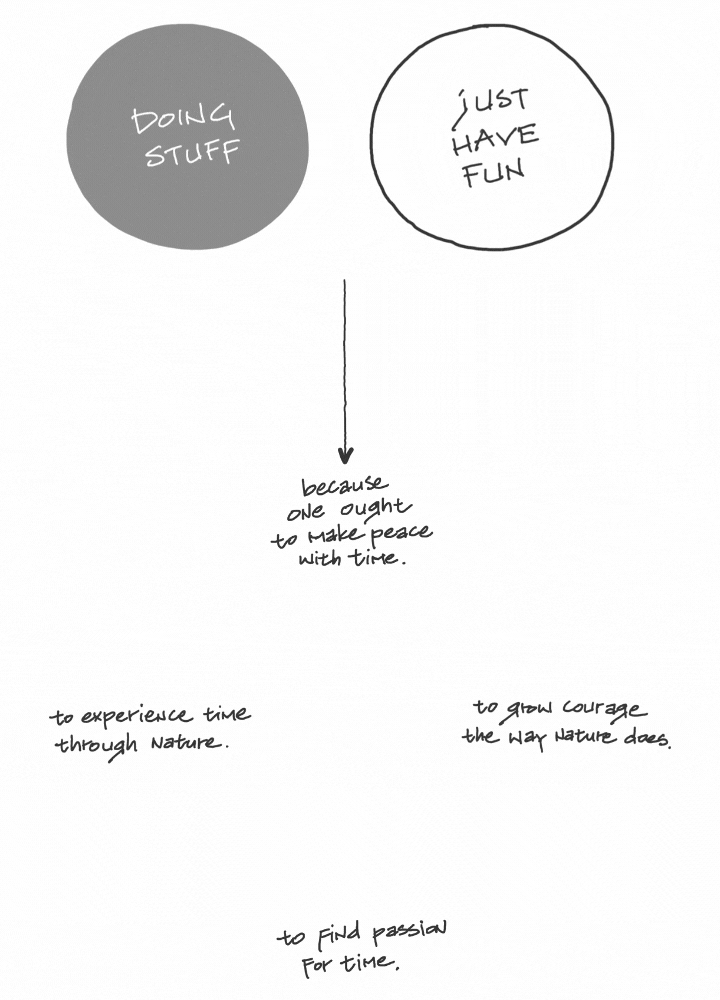 DOING
STUFF
JUST
HAVE
FUN
because
one ought
to make peace
with time.
to experience time
through nature.
to grow courage
the way nature does.
to find passion
for time.